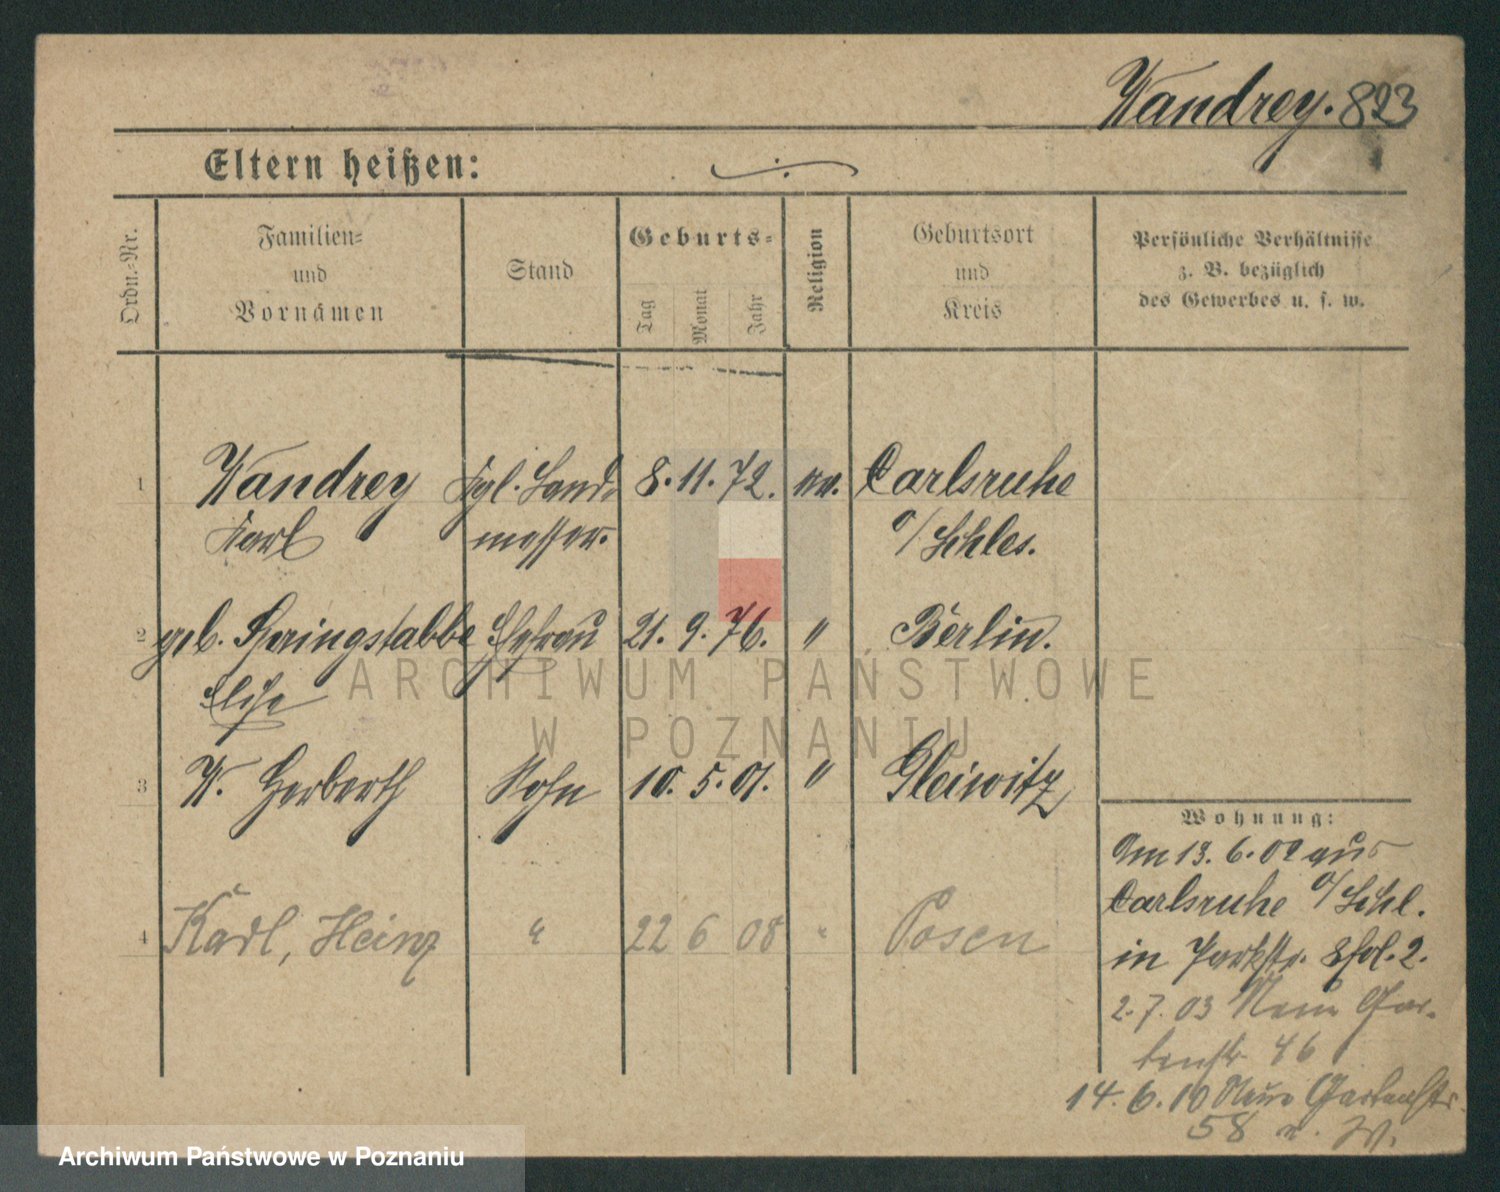 Wandrey. 823
Eltern heißen:
Ordn.-Nr.
Familien-
und
Vornamen
Stand
Geburts-
Tag
Monat
Jahr
Religion
Geburtsort
und
Kreis
Persönliche Verhältnisse
z. B. bezüglich
des Gewerbes u. s. w.
1 Wandrey Kgl. Land- 8. 11. 72. ev. Carlsruhe
Karl messer. o/Schles.
2 geb. Springstabbe Ehefrau 21. 9. 76. " Berlin.
Elise
3 W. Herberth Sohn 10. 5. 01. " Gleiwitz
4 Karl, Heinz " 22 6 08 " Posen
Wohnung:
Am 13. 6. 02 aus
Carlsruhe o/Schl.
in Parkstr. 2.
2. 7. 03 Neue Gar-
tenstr 46
14. 6. 10 Neue Gartenstr.
58
ARCHIWUM PAŃSTWOWE
W POZNANIU
Archiwum Państwowe w Poznaniu